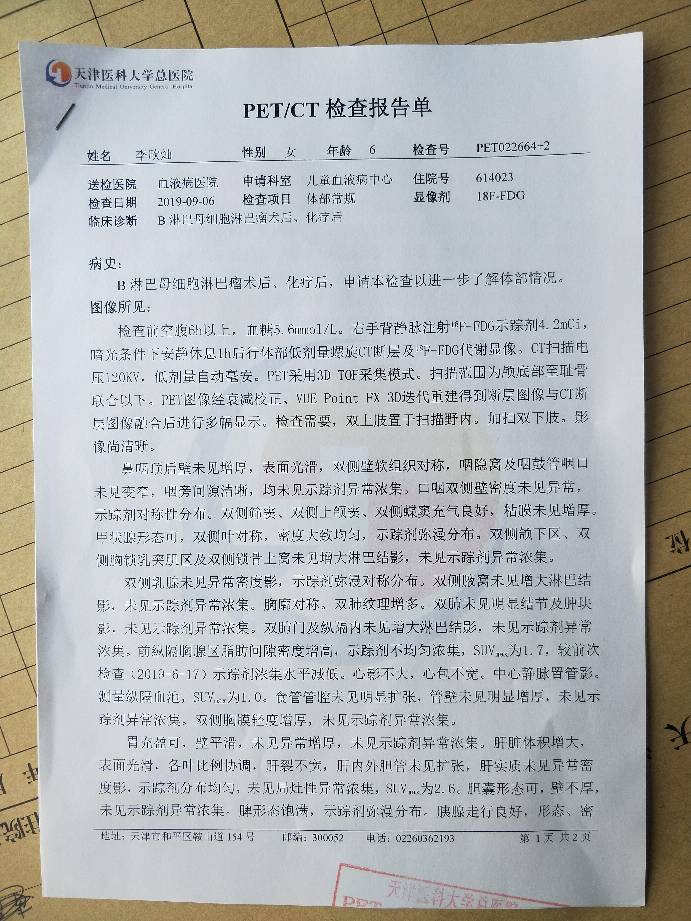 天津医科大学总医院
Tianjin Medical University General Hospital
PET/CT 检查报告单
姓名 李欣灿 性别 女 年龄 6 检查号 PET022664+2
送检医院 血液病医院 申请科室 儿童血液病中心 住院号 614023
检查日期 2019-09-06 检查项目 体部常规 显像剂 18F-FDG
临床诊断 B 淋巴母细胞淋巴瘤术后、化疗后
病史:
B 淋巴母细胞淋巴瘤术后、化疗后，申请本检查以进一步了解体部情况。
图像所见:
检查前空腹6h以上，血糖5.6mmol/L。右手背静脉注射¹⁸F-FDG示踪剂4.2mCi，
暗光条件下安静休息1h后行体部低剂量螺旋CT断层及¹⁸F-FDG代谢显像。CT扫描电
压120KV，低剂量自动毫安。PET采用3D TOF采集模式。扫描范围为颅底部至耻骨
联合以下。PET图像经衰减校正、VUE Point FX 3D迭代重建得到断层图像与CT断
层图像融合后进行多幅显示。检查需要，双上肢置于扫描野内。加扫双下肢。影
像尚清晰。
鼻咽顶后壁未见增厚，表面光滑，双侧壁软组织对称，咽隐窝及咽鼓管咽口
未见变窄，咽旁间隙清晰，均未见示踪剂异常浓集。口咽双侧壁密度未见异常，
示踪剂对称性分布。双侧筛窦、双侧上颌窦、双侧蝶窦充气良好，粘膜未见增厚。
甲状腺形态可，双侧叶对称，密度大致均匀，示踪剂弥漫分布。双侧颌下区、双
侧胸锁乳突肌区及双侧锁骨上窝未见增大淋巴结影，未见示踪剂异常浓集。
双侧乳腺未见异常密度影，示踪剂弥漫对称分布。双侧腋窝未见增大淋巴结
影，未见示踪剂异常浓集。胸廓对称。双肺纹理增多。双肺未见明显结节及肿块
影，未见示踪剂异常浓集。双肺门及纵隔内未见增大淋巴结影，未见示踪剂异常
浓集。前纵隔胸腺区脂肪间隙密度增高，示踪剂不均匀浓集，SUVmax为1.7，较前次
检查（2019-6-17）示踪剂浓集水平减低。心影不大，心包不宽。中心静脉置管影。
测量纵隔血池，SUVmax为1.0。食管管腔未见明显扩张，管壁未见明显增厚，未见示
踪剂异常浓集。双侧胸膜轻度增厚，未见示踪剂异常浓集。
胃充盈可，壁平滑，未见异常增厚，未见示踪剂异常浓集。肝脏体积增大，
表面光滑，各叶比例协调，肝裂不宽，肝内外胆管未见扩张，肝实质未见异常密
度影，示踪剂分布均匀，未见局灶性异常浓集，SUVmax为2.6。胆囊形态可，壁不厚，
未见示踪剂异常浓集。脾形态饱满，示踪剂弥漫分布。胰腺走行良好，形态、密
地址：天津市和平区鞍山道 154 号 邮编：300052 电话：02260362193 第 1 页 共 2 页
天津医科大学总医院